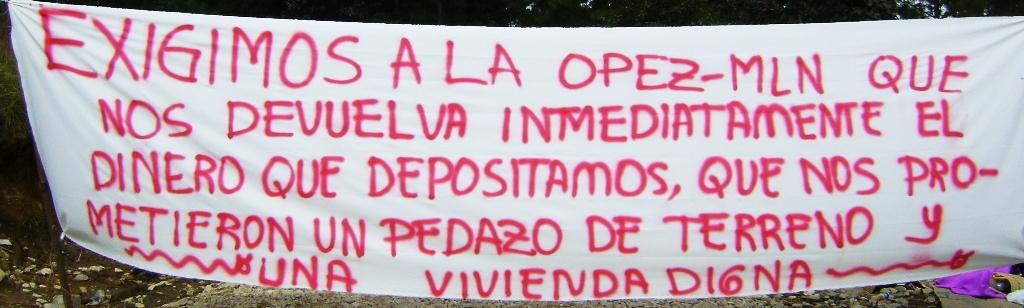 EXIGIMOS A LA OPEZ-MLN QUE
NOS DEVUELVA INMEDIATAMENTE EL
DINERO QUE DEPOSITAMOS, QUE NOS PRO-
METIERON UN PEDAZO DE TERRENO Y
UNA VIVIENDA DIGNA